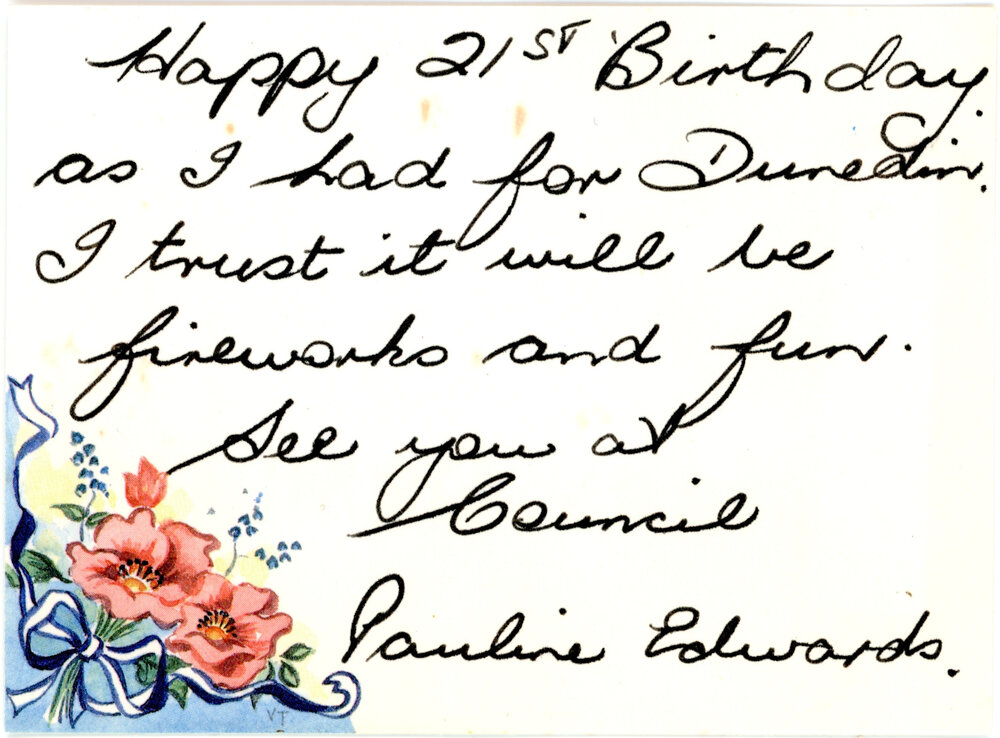 Happy 21ST Birthday
as I had for Dunedin.
I trust it will be
fireworks and fun.
See you at
Council
Pauline Edwards.
VT